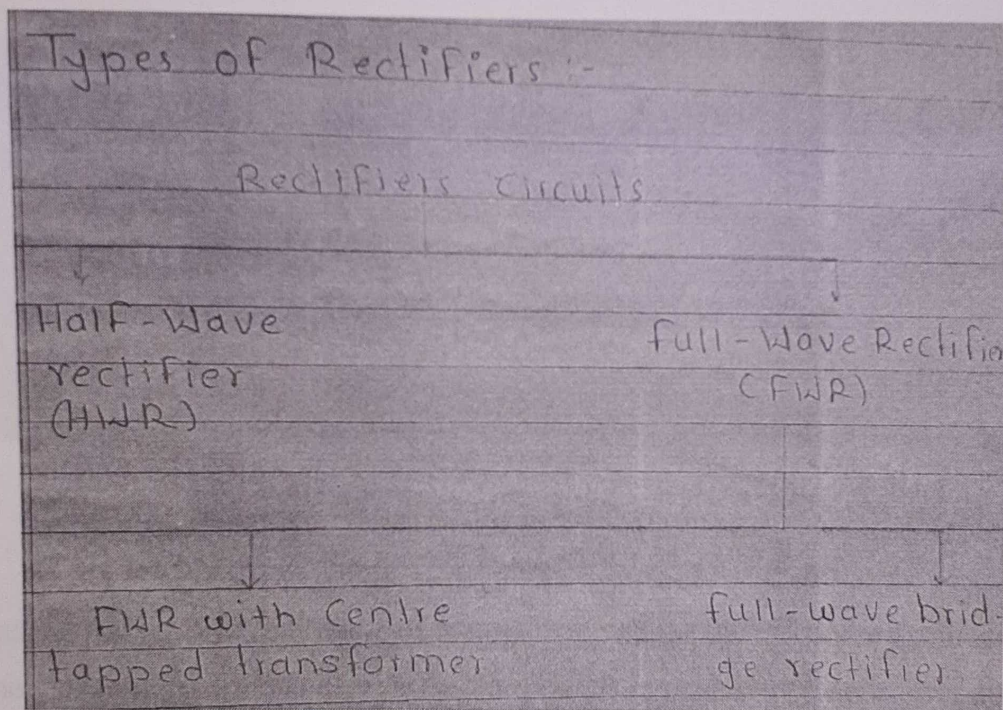 Types of Rectifiers :-
Rectifiers circuits
Half-Wave
rectifier
(HWR)
full-Wave Rectifie
(FWR)
FWR with Centre
tapped transformer
full-wave brid-
ge rectifier